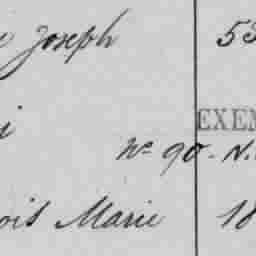 Joseph 53
EXEM
Nº 90. N.
ois Marie 18